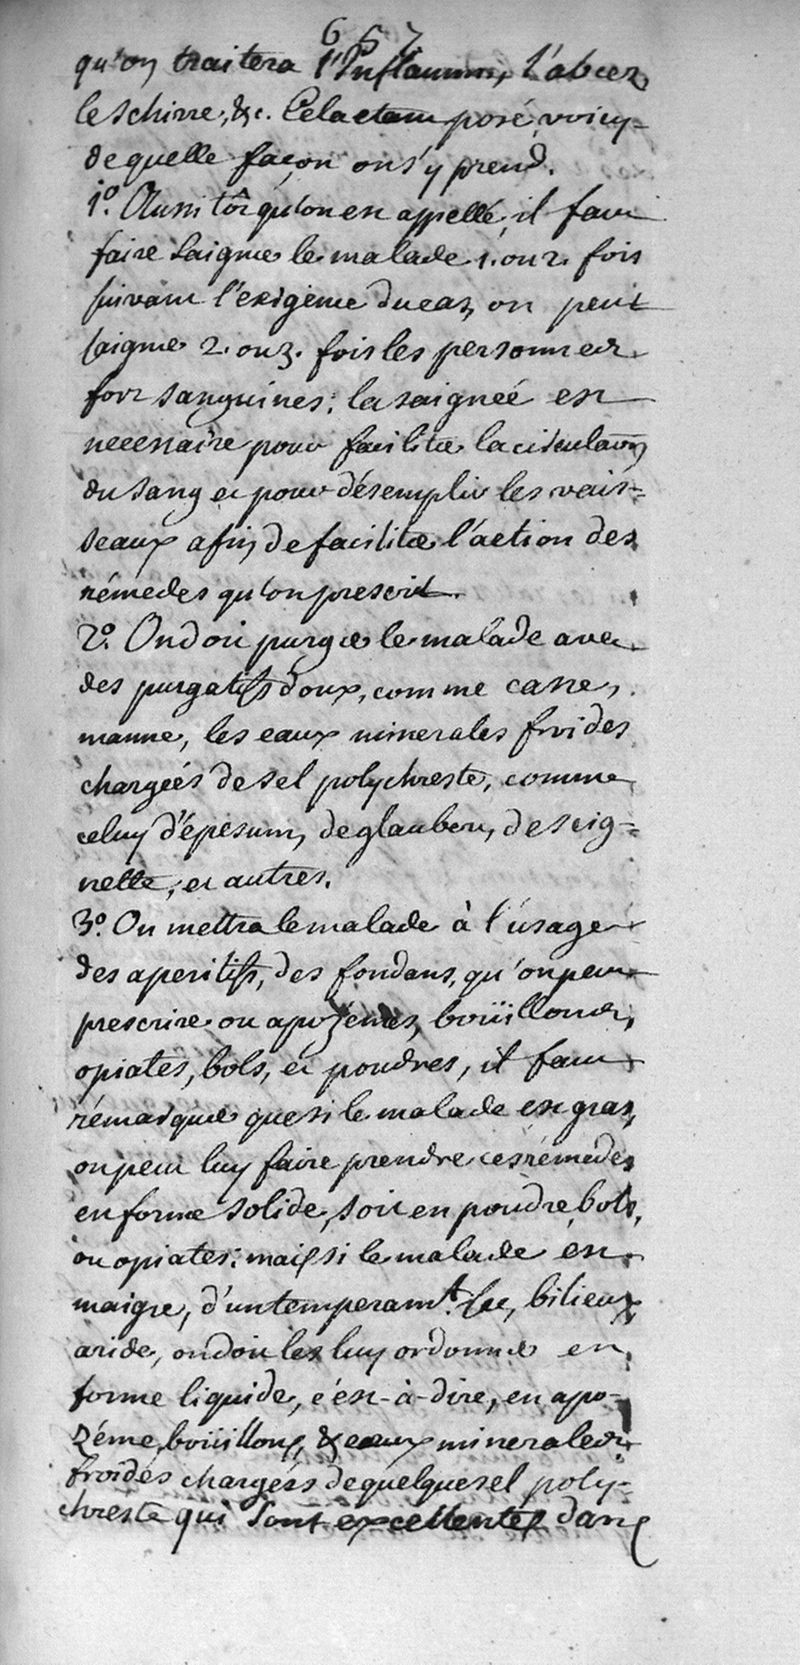 657
qu'on traitera l'Inflamm, l'abcez,
le schirre, &c. Cela etant posé, voicy
de quelle façon on s'y prend.
1º. Aussi tôt qu'on est appellé, il faut
faire saigner le malade 1. ou 2. fois
suivant l'exigence du cas, on peut
saigner 2. ou 3. fois les personnes
fort sanguines; la saigneé est
necessaire pour faciliter la circulaōn
du sang et pour désemplir les vais=
seaux afin de faciliter l'action des
rémedes qu'on prescrit.
2º. On doit purger le malade avec
des purgatifs doux, comme casse,
manne, les eaux minerales froides
chargeés de sel polychreste, comme
celuy d'épesum, de glauber, de seig=
nette, et autres.
3º. On mettra le malade à l'úsage
des aperitifs, des fondans, qu'on peut
prescrire ou apozémes, boüillons,
opiates, bols, et poudres, il faut
rémarquer que si le malade est gras,
on peut luy faire prendre ces rémedes
en forme solide, soit en poudre, bols,
ou opiates; mais si le malade est
maigre, d'un temperamt. sec, bilieux,
aride, on doit les luy ordonner en
forme liquide, c'est-à-dire, en apo=
zéme, boüillons, & eaux minerales
froides chargeés de quelque sel poly=
chreste qui sont excellentes dans